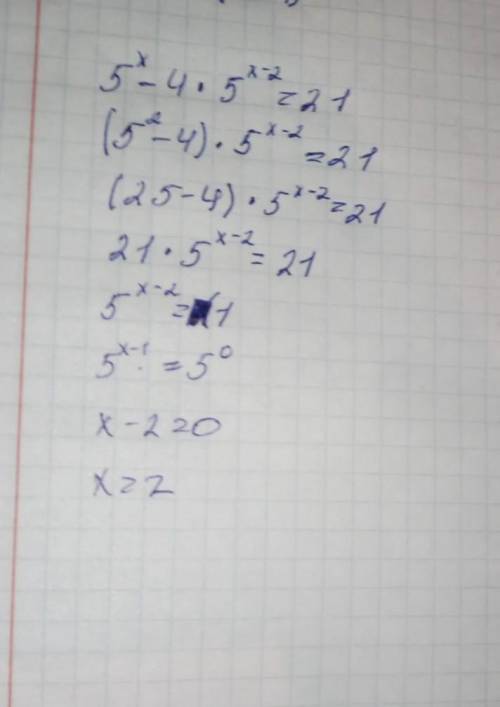 5^x - 4 · 5^{x-2} = 21
(5^2 - 4) · 5^{x-2} = 21
(25 - 4) · 5^{x-2} = 21
21 · 5^{x-2} = 21
5^{x-2} = 1
5^{x-1} = 5^0
x - 2 = 0
x = 2